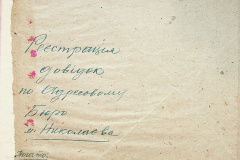 Реєстрація
довідок
по Адресовому
Бюро
м. Николаєва